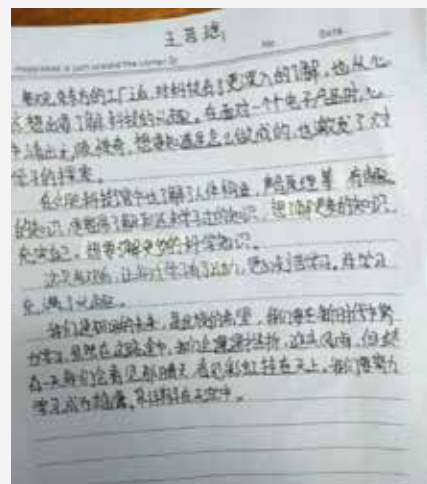 王若琀
No. Date
Happiness is just around the corner
参观完东方的工厂后,对科技有了更深入的了解,也从心
想出看了解科技的兴趣。在面对一个个电子产品时,心
中涌出无限好奇,想要知道是怎么做成的,也激发了对
学习的探索。
在合肥科技馆中也了解了人体构造,声的原理等有趣
的知识,使想了解到还未学过的知识,想了解更多的知识,
充实自己,想要了解更多的科学知识。
这只有,让我对学习有了动力,更加刻苦学习,为学习
充满了兴趣。
我们是祖国的未来,是的希望,我们要在新时代中努
力学习,虽然在这路途中,我们会遭遇挫折,迎头风雨,但总
有一天我们会看见那晴天,看见彩虹挂在天上,我们要努力
学习成为雄鹰,在天空中。